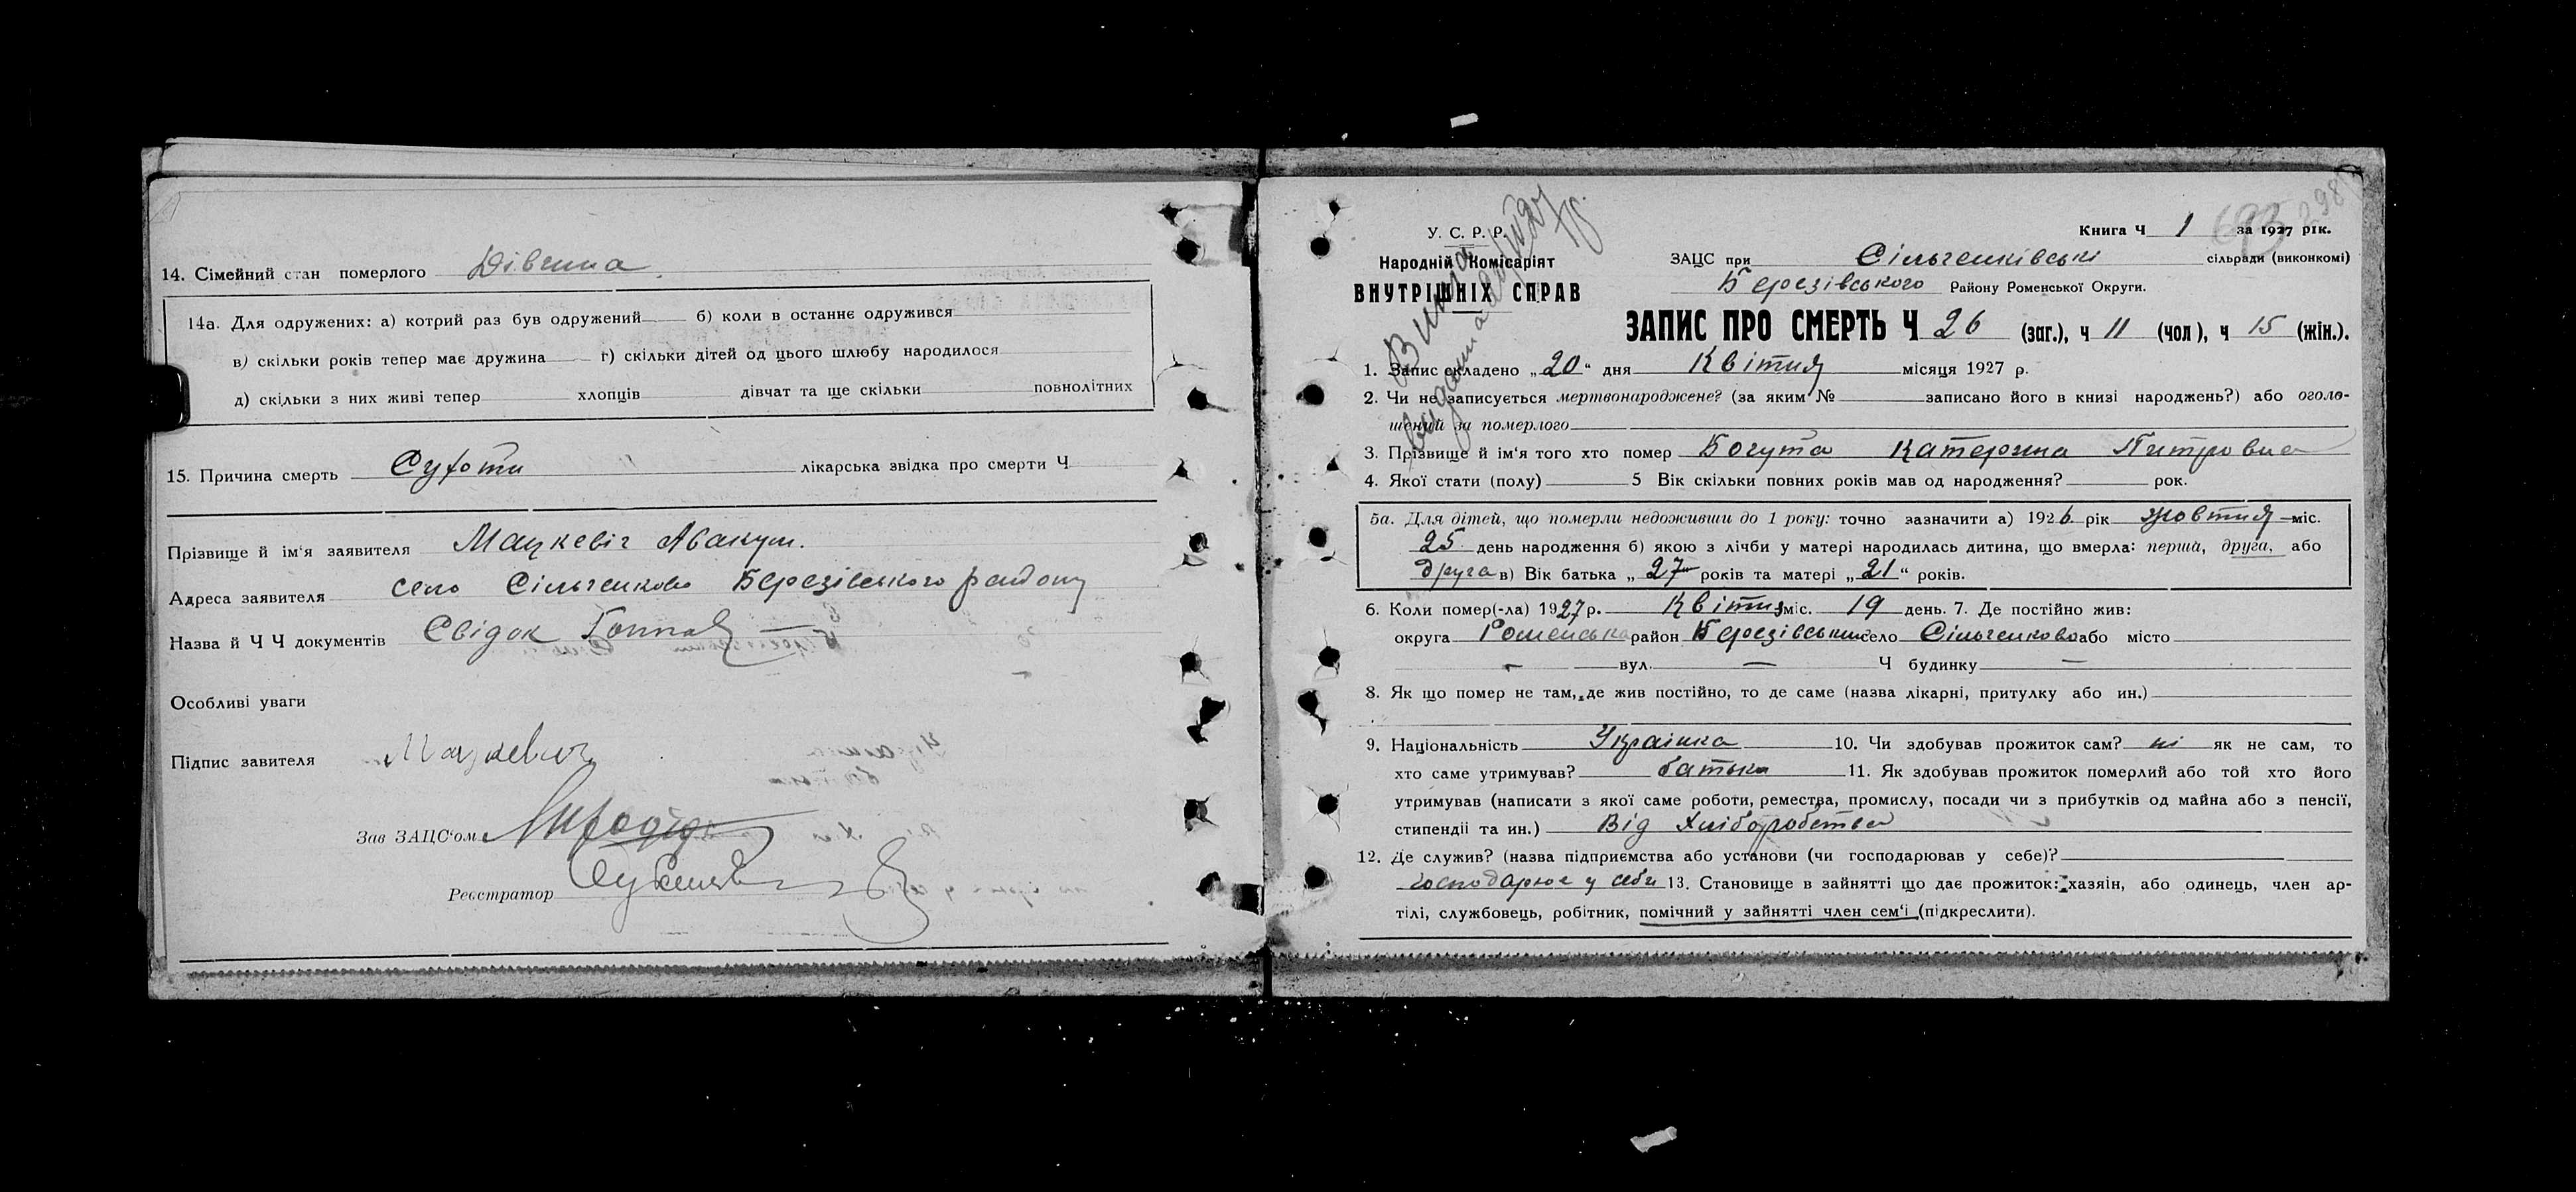 14. Сімейний стан померлого Дівчина
14а. Для одружених: а) котрий раз був одружений б) коли в останнє одружився
в) скільки років тепер має дружина г) скільки дітей од цього шлюбу народилося
д) скільки з них живі тепер хлопців дівчат та ще скільки повнолітних
15. Причина смерть Сухоти лікарська звідка про смерти Ч
Прізвище й ім'я заявителя Мацкевіч Авакум.
Адреса заявителя село Сільченково Березівського району
Назва й Ч Ч документів Свідок
Особливі уваги
Підпис завителя Мацкевич
Зав ЗАЦС'ом
Реєстратор
У. С. Р. Р.
Народній Комісаріят
ВНУТРІШНІХ СПРАВ
Книга Ч 1 за 1927 рік.
ЗАЦС при Сільченківські сільради (виконкомі)
Березівського Району Роменської Округи.
ЗАПИС ПРО СМЕРТЬ Ч 26 (заг.), ч 11 (чол), ч 15 (жін.).
1. Запис складено „20“ дня Квітня місяця 1927 р.
2. Чи не записується мертвонароджене? (за яким № записано його в книзі народжень?) або оголо-
шений за померлого
3. Прізвище й ім'я того хто помер Богута Катерина Питровна
4. Якої стати (полу) 5 Вік скільки повних років мав од народження? рок.
5а. Для дітей, що померли недоживши до 1 року: точно зазначити а) 1926 рік жовтня міс.
25 день народження б) якою з лічби у матері народилась дитина, що вмерла: перша, друга, або
друга в) Вік батька „27“ років та матері „21“ років.
6. Коли помер(-ла) 1927 р. Квітня міс. 19 день. 7. Де постійно жив:
округа Роменська район Березівський село Сільченково або місто
вул. — Ч будинку —
8. Як що помер не там, де жив постійно, то де саме (назва лікарні, притулку або ин.)
9. Національність Українка 10. Чи здобував прожиток сам? ні як не сам, то
хто саме утримував? батько 11. Як здобував прожиток померлий або той хто його
утримував (написати з якої саме роботи, ремества, промислу, посади чи з прибутків од майна або з пенсії,
стипендії та ин.) Від Хліборобства
12. Де служив? (назва підприємства або установи (чи господарював у себе)?
господарює у себе 13. Становище в зайнятті що дає прожиток: хазяін, або одинець, член ар-
тілі, службовець, робітник, помічний у зайнятті член сем'ї (підкреслити).